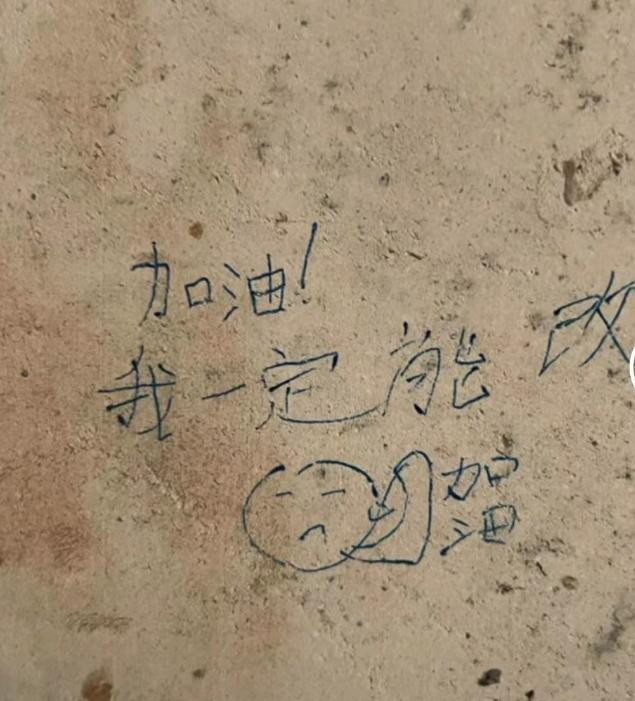 加油!
我一定能改
加油